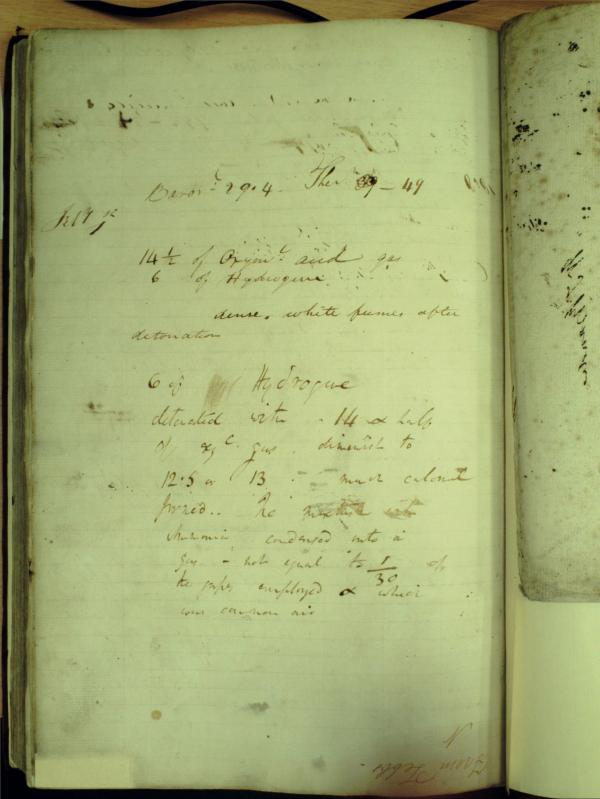 Barom.r 29.4. Ther 39 - 49
14 ½ of Oxym.c acid gas
6 of Hydrogene
dense, white fumes after
detonation
6 of Hydrogene
detonated with 14 & half
of gas. diminish to
12.5 or 13 much calomel
formed.. The mixture with
Ammonia condensed into a
gas - not equal to 1/30 of
the gases employed & which
was common air
From Feb